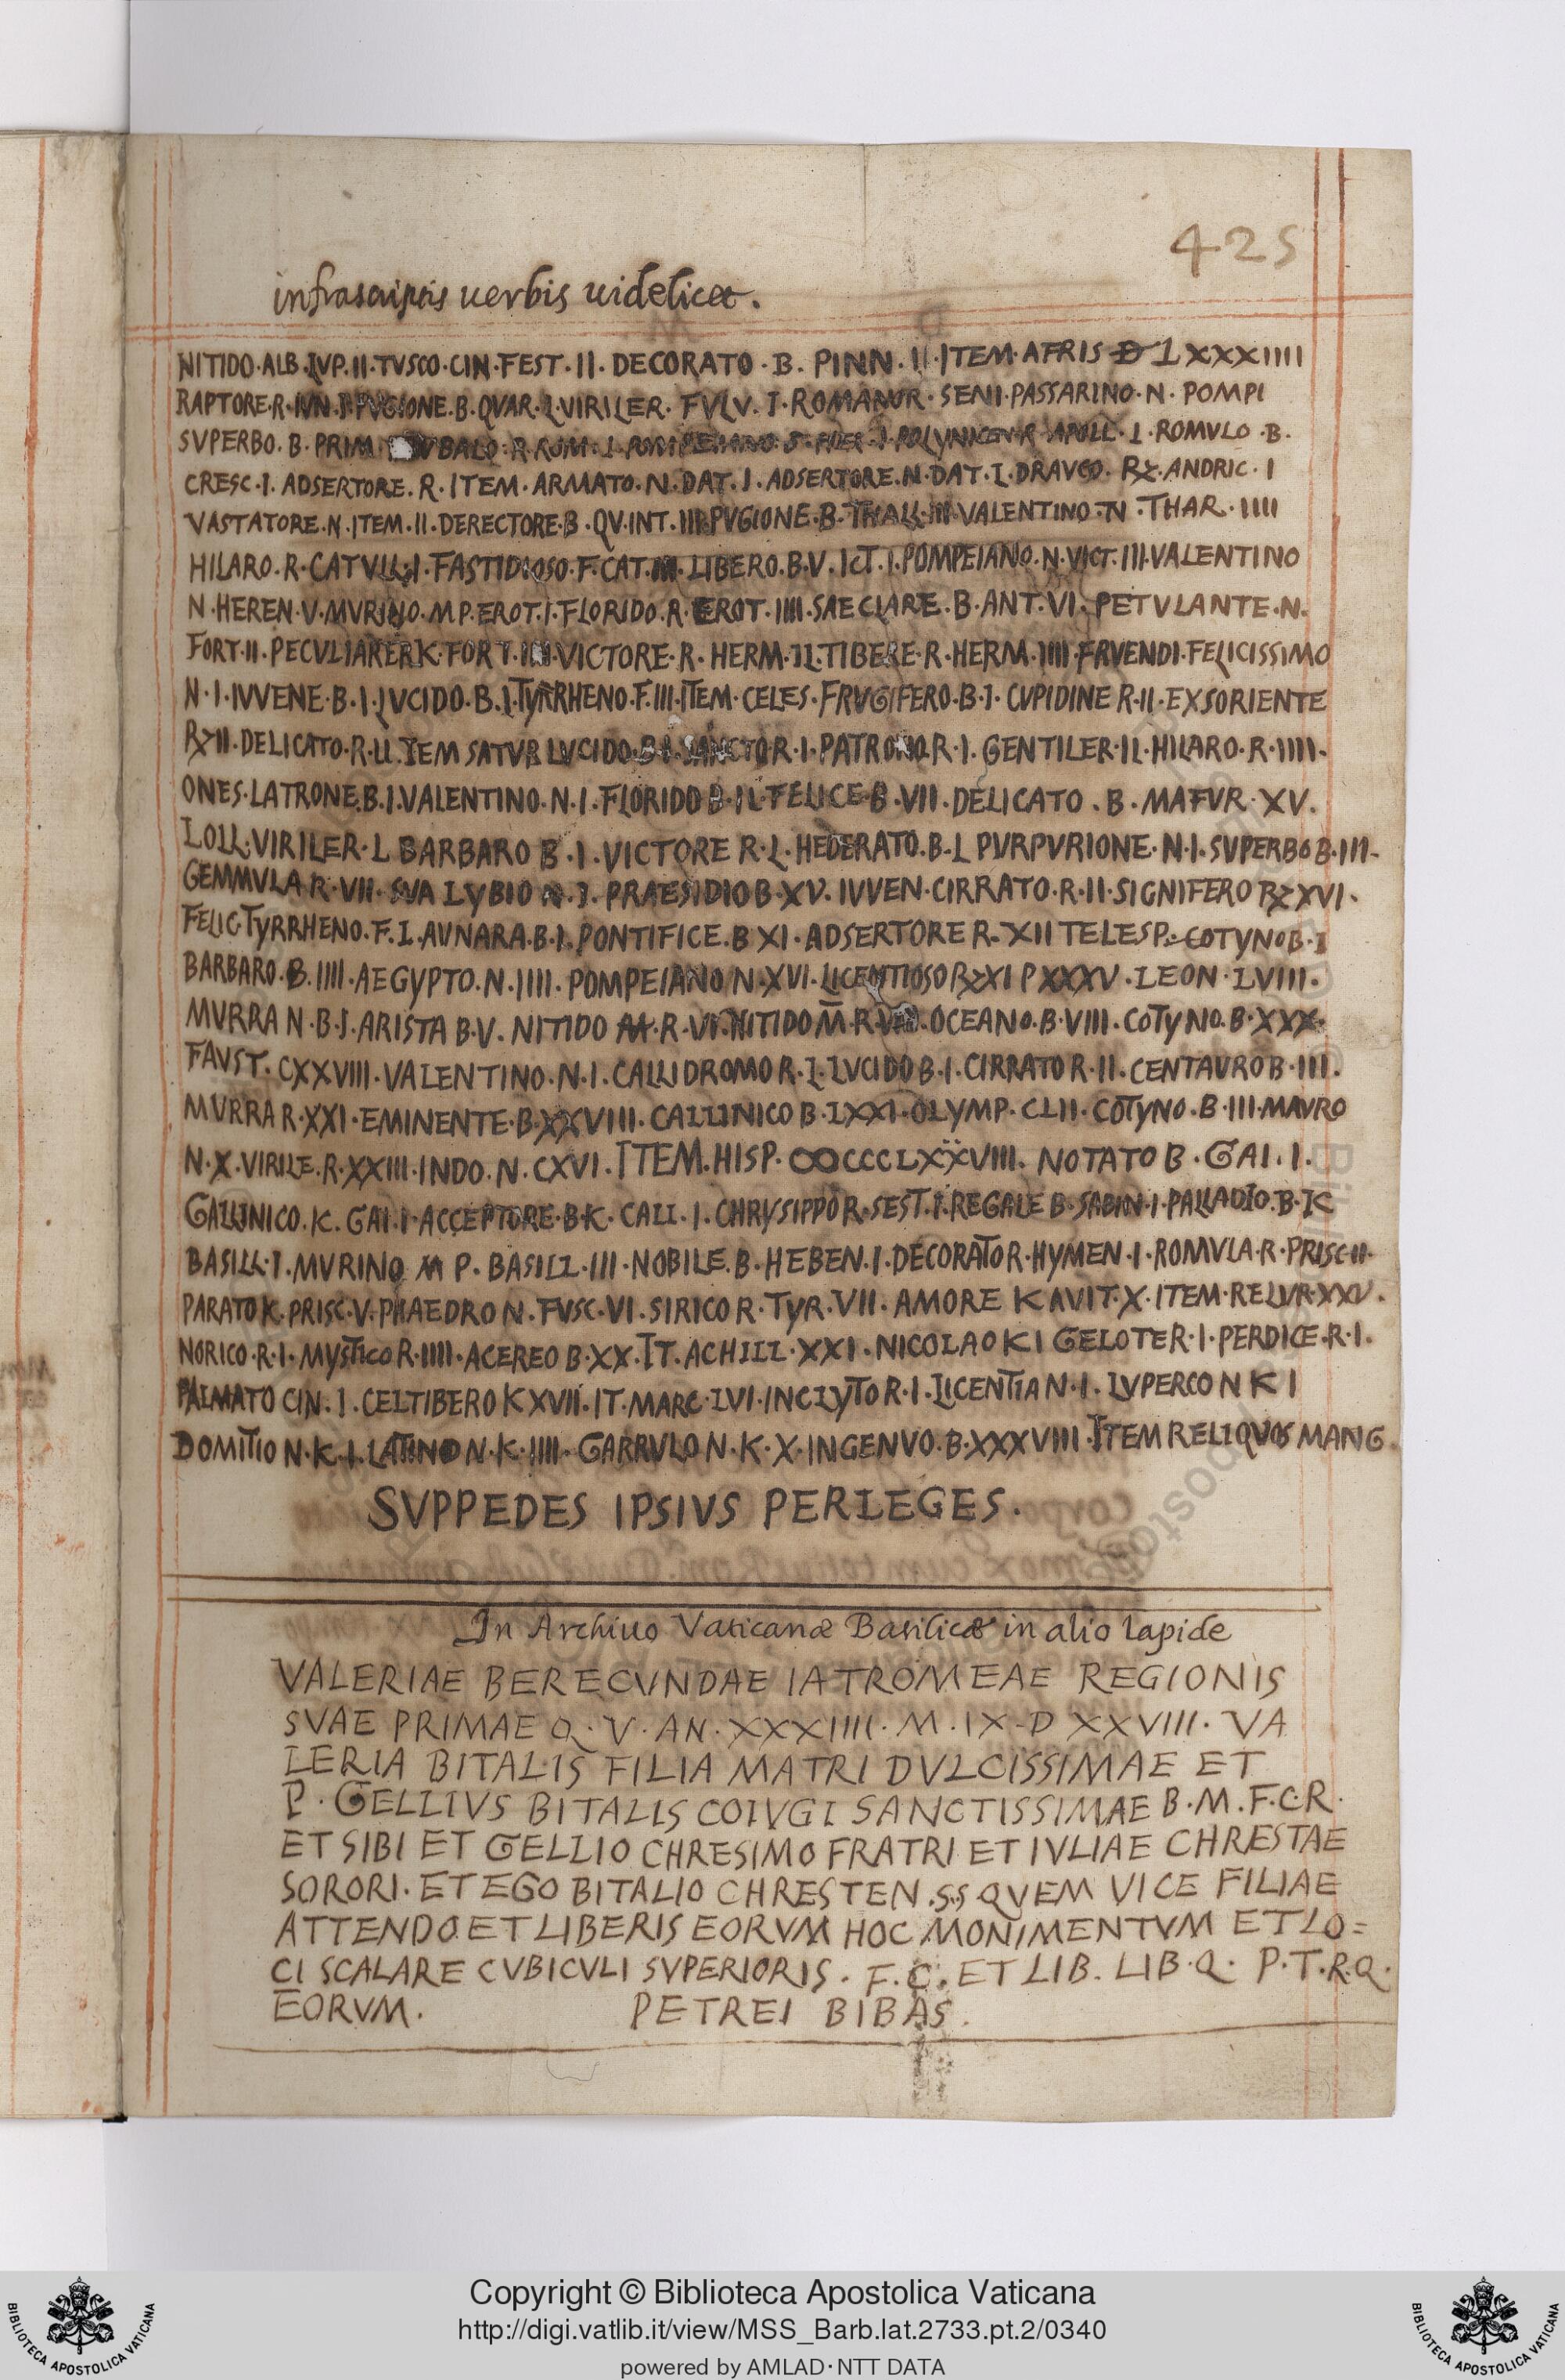 425
infrascriptis uerbis uidelicet.
NITIDO·ALB·IVP·II·TVSCO·CIN·FEST·II·DECORATO·B·PINN·II·ITEM·AFRIS Đ LXXXIIII
RAPTORE·R·IVN·I·PVGIONE·B·QVAR·L·VIRILER·FVLV·I·ROMANOR·SENI·PASSARINO·N·POMPI
SVPERBO·B·PRIM· R·ROM·I· APOLL·I·ROMVLO·B·
CRESC·I·ADSERTORE·R·ITEM·ARMATO·N·DAT·I·ADSERTORE·N·DAT·I·DRAVCO·R·ANDRIC·I
VASTATORE·N·ITEM·II·DERECTORE·B·QV·INT·III·PVGIONE·B·THALL·III·VALENTINO·N·THAR·IIII
HILARO·R·CATVLL·I·FASTIDIOSO·F·CAT·III·LIBERO·B·V·ICT·I·POMPEIANO·N·VICT·III·VALENTINO
N·HEREN·V·MVRINO·MP·EROT·I·FLORIDO·R·EROT·IIII·SAECLARE·B·ANT·VI·PETVLANTE·N·
FORT·II·PECVLIARE K·FORT·III·VICTORE·R·HERM·II·TIBERE·R·HERM·IIII·FRVENDI·FELICISSIMO
N·I·IVVENE·B·I·LVCIDO·B·I·TYRRHENO·F·III·ITEM·CELES·FRVGIFERO·B·I·CVPIDINE R·II·EXSORIENTE
II·DELICATO·R·II·IEM SATVR LVCIDO·B·I·SANCTO·R·I·PATRONO·R·I·GENTILER·II·HILARO·R·IIII·
ONES·LATRONE·B·I·VALENTINO·N·I·FLORIDO B·II·FELICE·B·VII·DELICATO·B·MAFVR·XV·
LOLL·VIRILER·L BARBARO B·I·VICTORE R·L·HEDERATO·B·L PVRPVRIONE·N·I·SVPERBO B·III·
GEMMVLA R·VII·SVA LYBIO N·I·PRAESIDIO B·XV·IVVEN·CIRRATO·R·II·SIGNIFERO XVI·
FELIC·TYRRHENO·F·I·AVNARA·B·I·PONTIFICE·B XI·ADSERTORE R·XII TELESP·COTYNO B·I
BARBARO·B·IIII·AEGYPTO·N·IIII·POMPEIANO N·XVI·LICENTIOSO XI PXXXV·LEON·LVIII·
MVRRA N·B·I·ARISTA B·V·NITIDO M·R·VI·NITIDO M̄·R· OCEANO·B·VIII·COTYNO·B·XXX·
FAVST·CXXVIII·VALENTINO·N·I·CALLIDROMO R·I·LVCIDO B·I·CIRRATO R·II·CENTAVRO B·III·
MVRRA R·XXI·EMINENTE·B·XXVIII·CALLINICO B·LXXI·OLYMP·CLII·COTYNO·B·III·MAVRO
N·X·VIRILE·R·XXIII·INDO·N·CXVI·ITEM·HISP·∞CCCCLXXVIII·NOTATO B·GAI·I·
GALLINICO·K·GAI·I·ACCEPTORE·B·K·CALL·I·CHRYSIPPO R·SEST·I·REGALE B·SABIN·I·PALLADIO·B·K
BASILL·I·MVRINO M P·BASILL·III·NOBILE·B·HEBEN·I·DECORATO R·HYMEN·I·ROMVLA·R·PRISC·II·
PARATO K·PRISC·V·PHAEDRO N·FVSC·VI·SIRICO R·TYR·VII·AMORE K AVIT·X·ITEM·RELVR·XXV·
NORICO·R·I·MYSTICO R·IIII·ACEREO B·XX·IT·ACHILL·XXI·NICOLAO K I GELOTE R·I·PERDICE·R·I·
PALMATO CIN·I·CELTIBERO K XVII·IT·MARC·LVI·INCLYTO R·I·LICENTIA N·I·LVPERCO N K I
DOMITIO N·K·I·LATINO N·K·IIII·GARRVLO N·K·X·INGENVO·B·XXXVIII·ITEM RELIQVOS MANG·
SVPPEDES IPSIVS PERLEGES·
In Archiuo Vaticanæ Basilicæ in alio lapide
VALERIAE BERECVNDAE IATROMEAE REGIONIS
SVAE PRIMAE Q·V·AN·XXXIIII·M·IX·D XXVIII·VA
LERIA BITALIS FILIA MATRI DVLCISSIMAE ET
P·GELLIVS BITALIS COIVGI SANCTISSIMAE B·M·F·C·R·
ET SIBI ET GELLIO CHRESIMO FRATRI ET IVLIAE CHRESTAE
SORORI·ET EGO BITALIO CHRESTEN·S·S QVEM VICE FILIAE
ATTENDO·ET LIBERIS EORVM HOC MONIMENTVM ET LO=
CI SCALARE CVBICVLI SVPERIORIS·F·C·ET LIB·LIB·Q·P·T·R·Q·
EORVM· PETREI BIBAS·
Copyright © Biblioteca Apostolica Vaticana
http://digi.vatlib.it/view/MSS_Barb.lat.2733.pt.2/0340
powered by AMLAD·NTT DATA
BIBLIOTECA APOSTOLICA VATICANA
BIBLIOTECA APOSTOLICA VATICANA